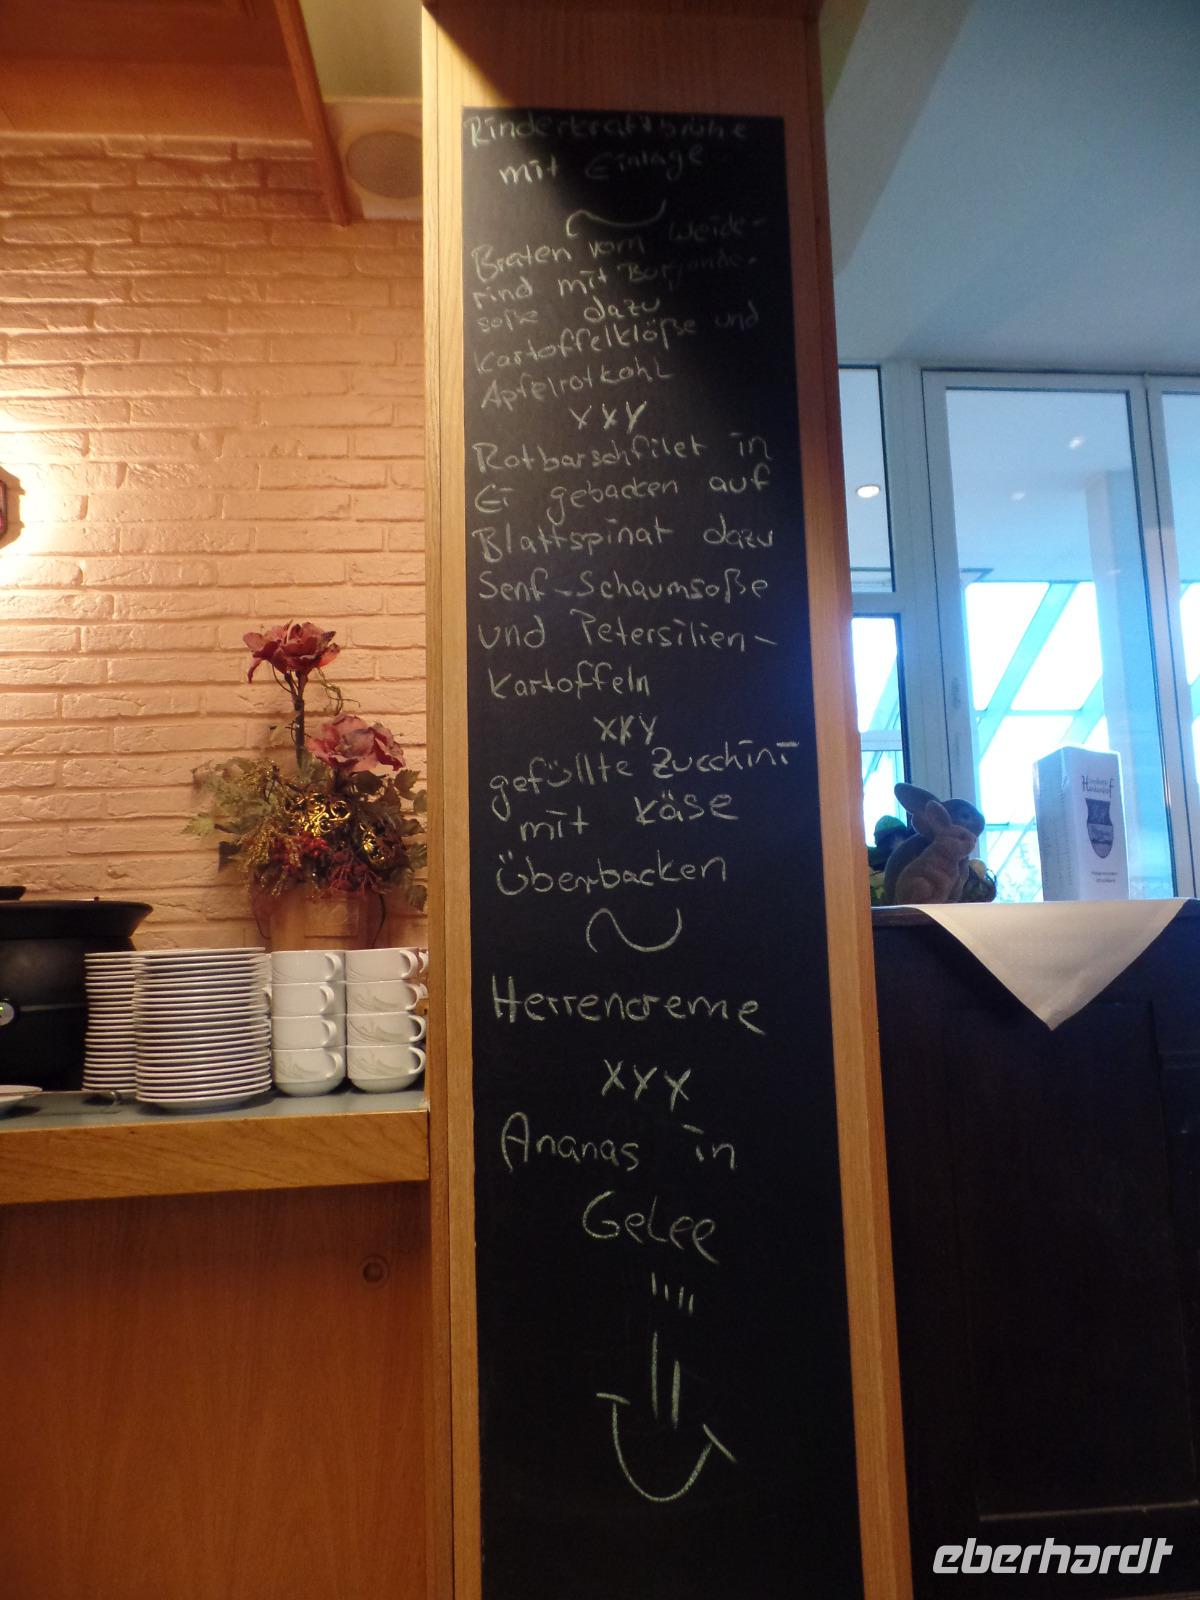 Rinderkraftbrühe
mit Einlage
Braten vom Weide-
rind mit Burgunder-
soße dazu
Kartoffelklöße und
Apfelrotkohl
xxx
Rotbarschfilet in
Ei gebacken auf
Blattspinat dazu
Senf-Schaumsoße
und Petersilien-
kartoffeln
xxx
gefüllte Zucchini
mit Käse
Überbacken
Herrencreme
xxx
Ananas in
Gelee
eberhardt